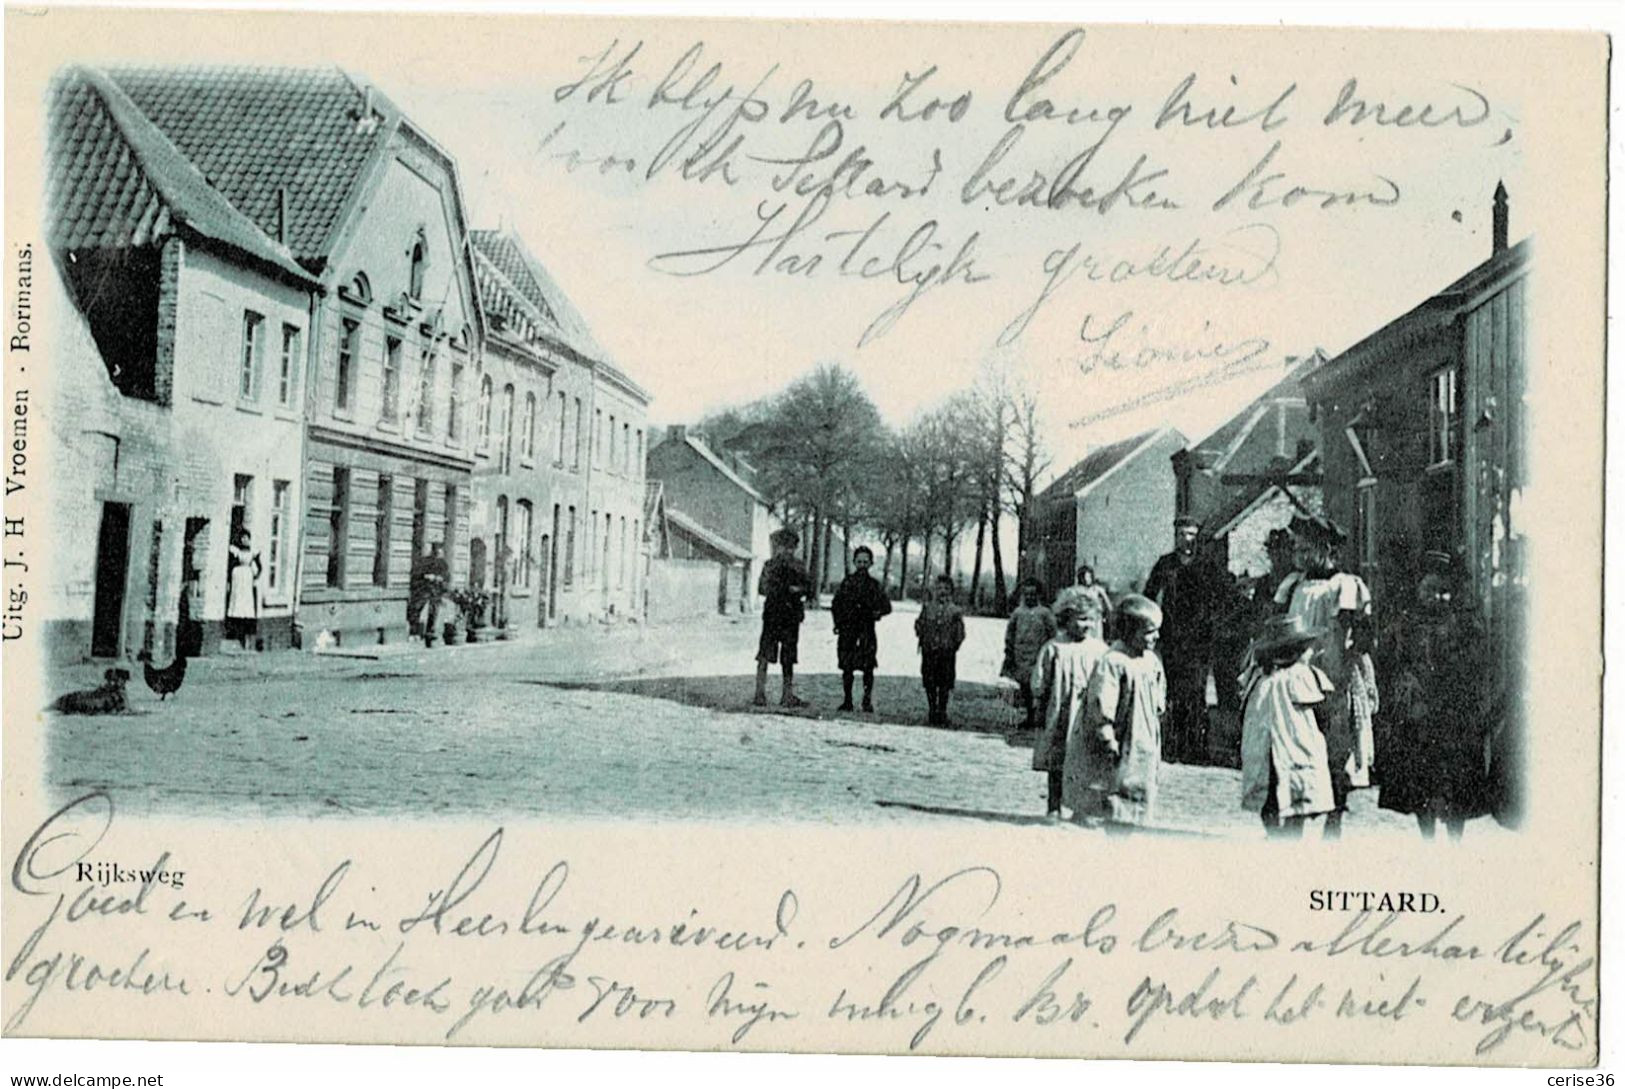 Ik blijf nu zoo lang niet meer,
voor ik Sittard bezoeken kom
Hartelijk groetend
Uitg. J. H Vroemen - Rormans.
Rijksweg
SITTARD.
Goed en wel in Heerlen gearriveerd. Nogmaals breze allerhartelijkste
groeten. Bidt toch goed voor mijn br. opdat het niet ergert
cerise36
delcampe.net